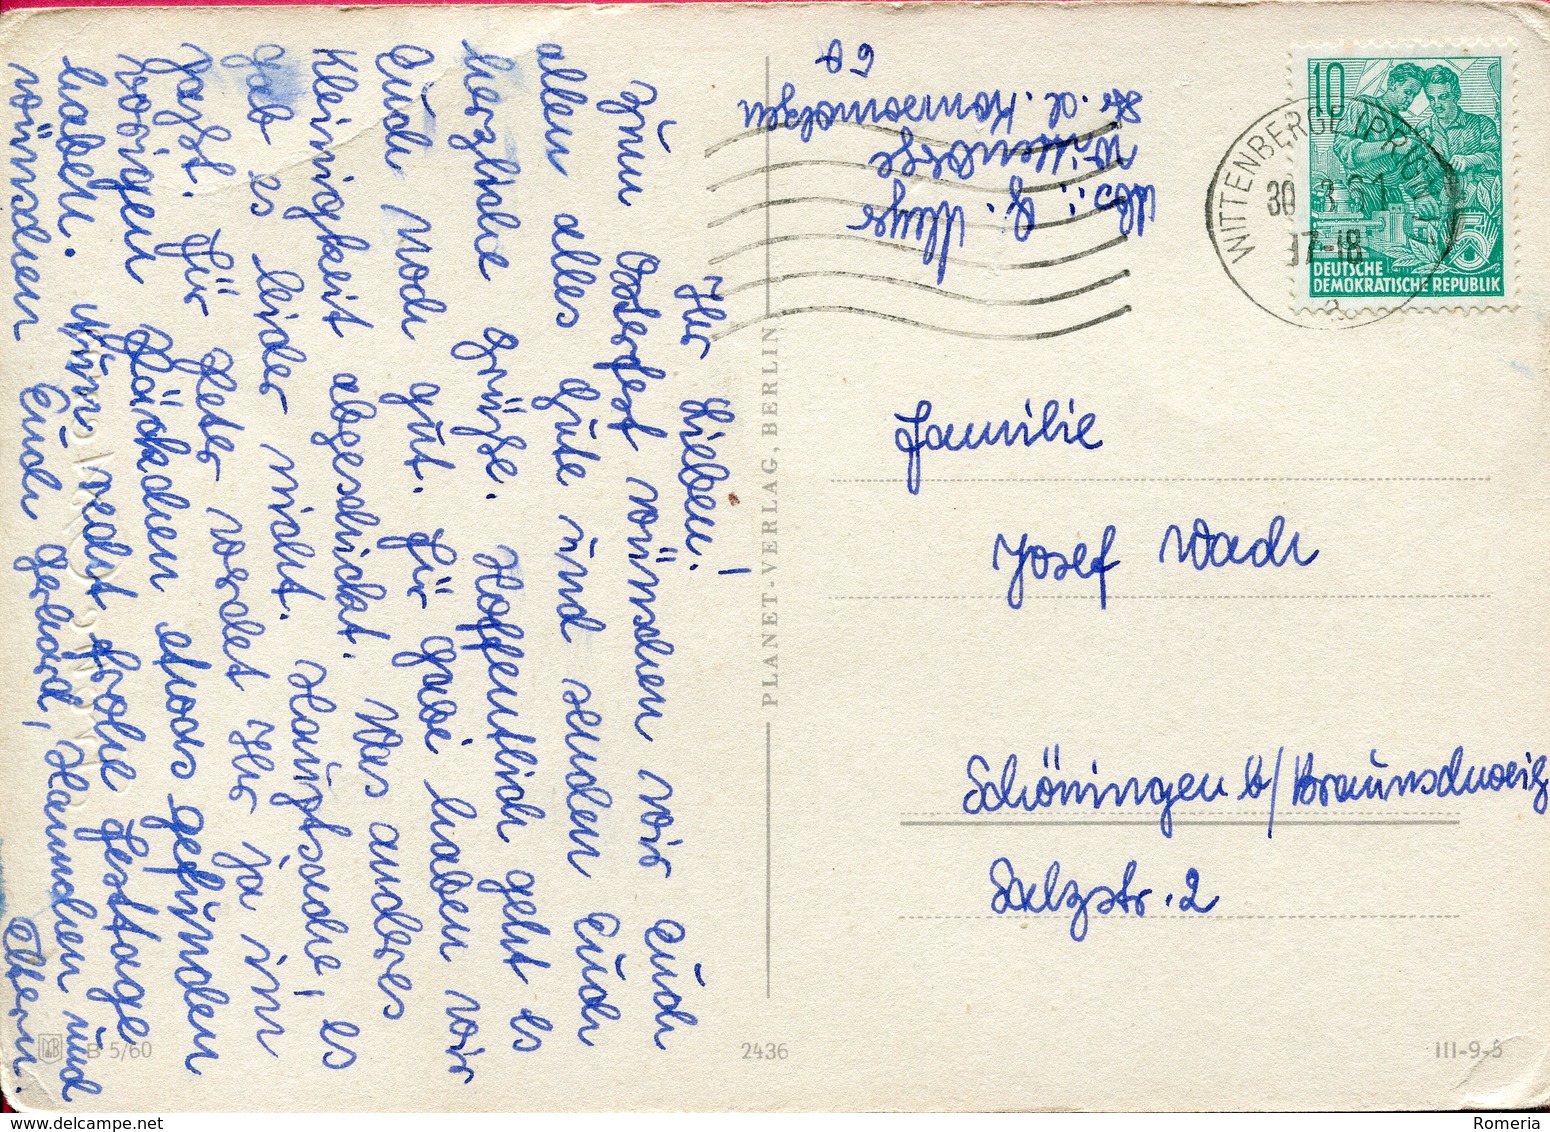 Ihr Lieben!
Zum Osterfest wünschen wir Euch
allen alles Gute und senden Euch
herzliche Grüße. Hoffentlich geht es
Euch noch gut. Für Gabi haben wir
Kleinigkeit abgeschickt. Was anderes
gab es leider nicht. Hauptsache, es
paßt. Für Peter werdet Ihr ja im
vorigen Päckchen etwas gefunden
haben. Nun recht frohe Festtage
wünschen Euch Gerhard, Hannchen und
Eltern.
Abs.: G. Meyer
Wittenberge
Str. d. Komsomolzen
60
10
DEUTSCHE
DEMOKRATISCHE REPUBLIK
WITTENBERGE (PRIGNITZ)
30.3.61
17-18
a
Familie
Josef Wach
Schöningen b/Braunschweig
Salzstr. 2
PLANET-VERLAG, BERLIN
B 5/60
2436
III-9-5
delcampe.net
Romeria